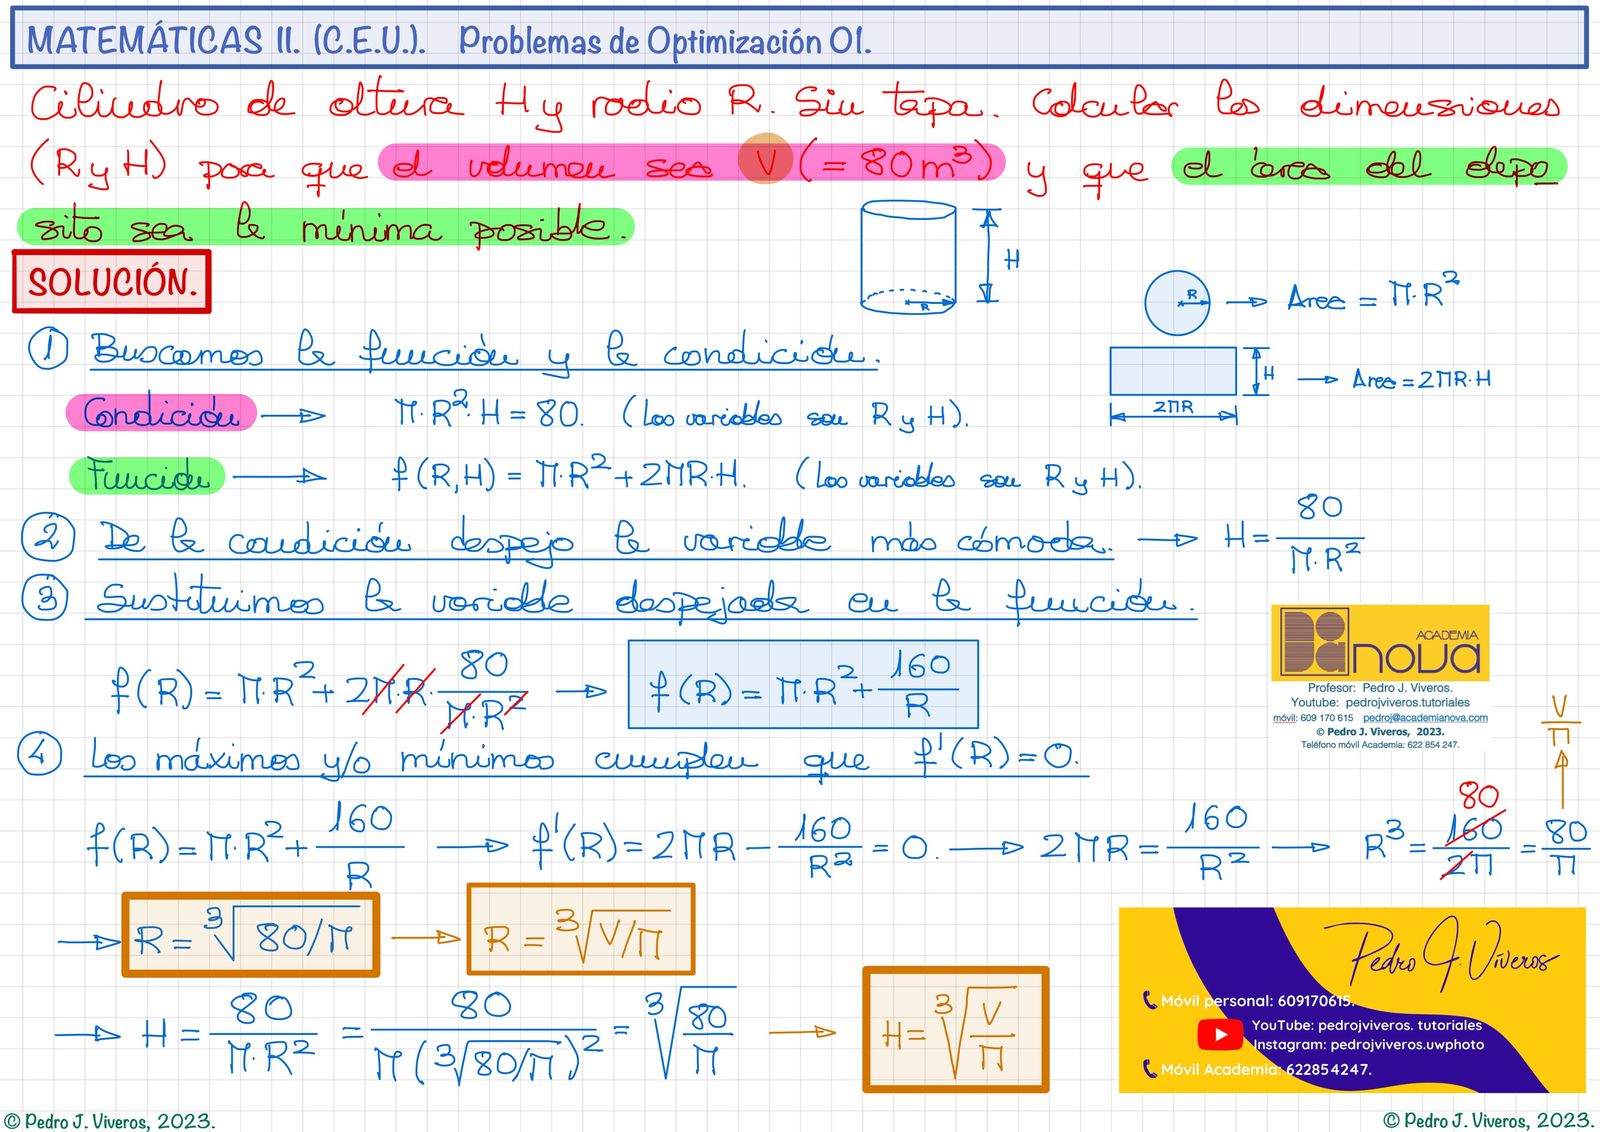 MATEMÁTICAS II. (C.E.U.). Problemas de Optimización 01.
Cilindro de altura H y radio R. Sin tapa. Calcular las dimensiones
(R y H) para que el volumen sea V (= 80 m³) y que el área del depo
sito sea la mínima posible.
H
R
SOLUCIÓN.
R → Area = π·R²
H → Area = 2πR·H
2πR
① Buscamos la función y la condición.
Condición → π·R²·H = 80. (Las variables son R y H).
Función → f(R,H) = π·R² + 2πR·H. (Las variables son R y H).
② De la condición despejo la variable más cómoda. → H = 80/(π·R²)
③ Sustituimos la variable despejada en la función.
f(R) = π·R² + 2π·R· 80/(π·R²) → f(R) = π·R² + 160/R
ACADEMIA
nova
Profesor: Pedro J. Viveros.
Youtube: pedrojviveros.tutoriales
móvil: 609 170 615 pedroj@academianova.com
© Pedro J. Viveros, 2023.
Teléfono móvil Academia: 622 854 247.
④ Los máximos y/o mínimos cumplen que f'(R) = 0.
V/π
80
f(R) = π·R² + 160/R → f'(R) = 2πR − 160/R² = 0. → 2πR = 160/R² → R³ = 160/2π = 80/π
→ R = ³√80/π → R = ³√V/π
→ H = 80/(π·R²) = 80/(π(³√80/π)²) = ³√(80/π) → H = ³√(V/π)
Pedro J. Viveros
Móvil personal: 609170615.
YouTube: pedrojviveros. tutoriales
Instagram: pedrojviveros.uwphoto
Móvil Academia: 622854247.
© Pedro J. Viveros, 2023.
© Pedro J. Viveros, 2023.